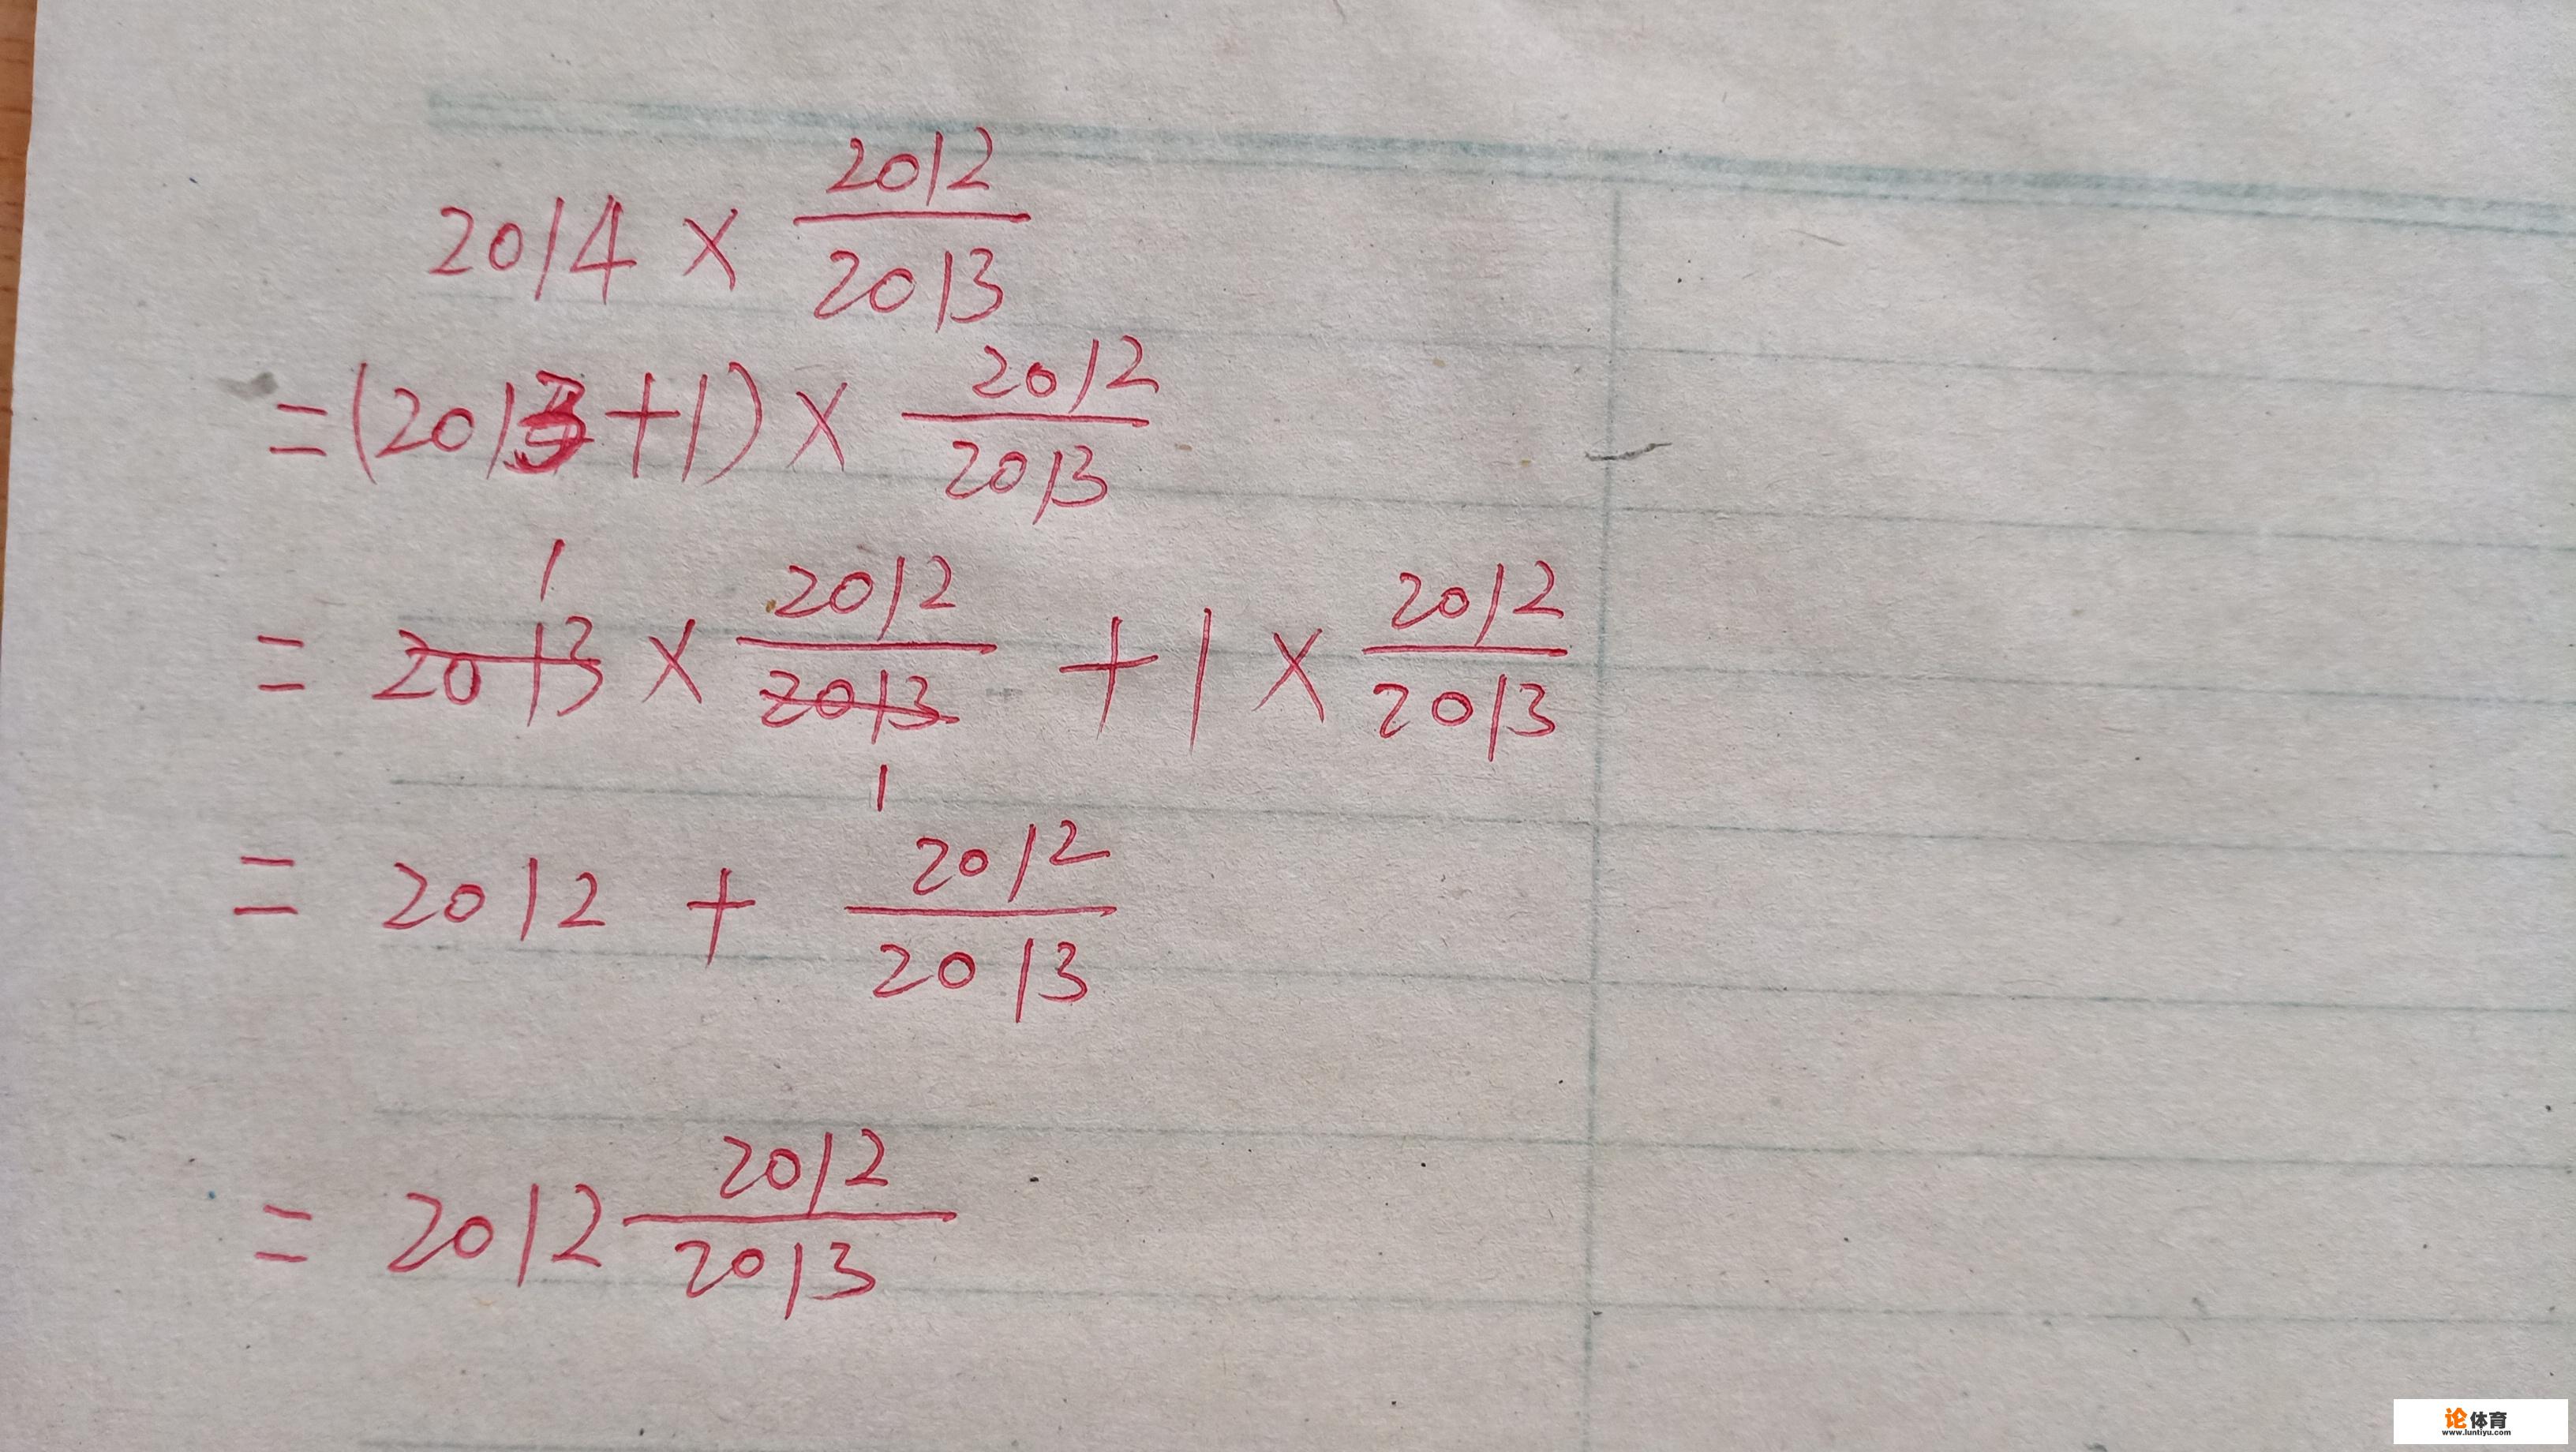 2014 × 2012/2013
= (2013 + 1) × 2012/2013
1
= 2013 × 2012/2013 + 1 × 2012/2013
1
= 2012 + 2012/2013
= 2012 2012/2013
论体育
www.luntiyu.com